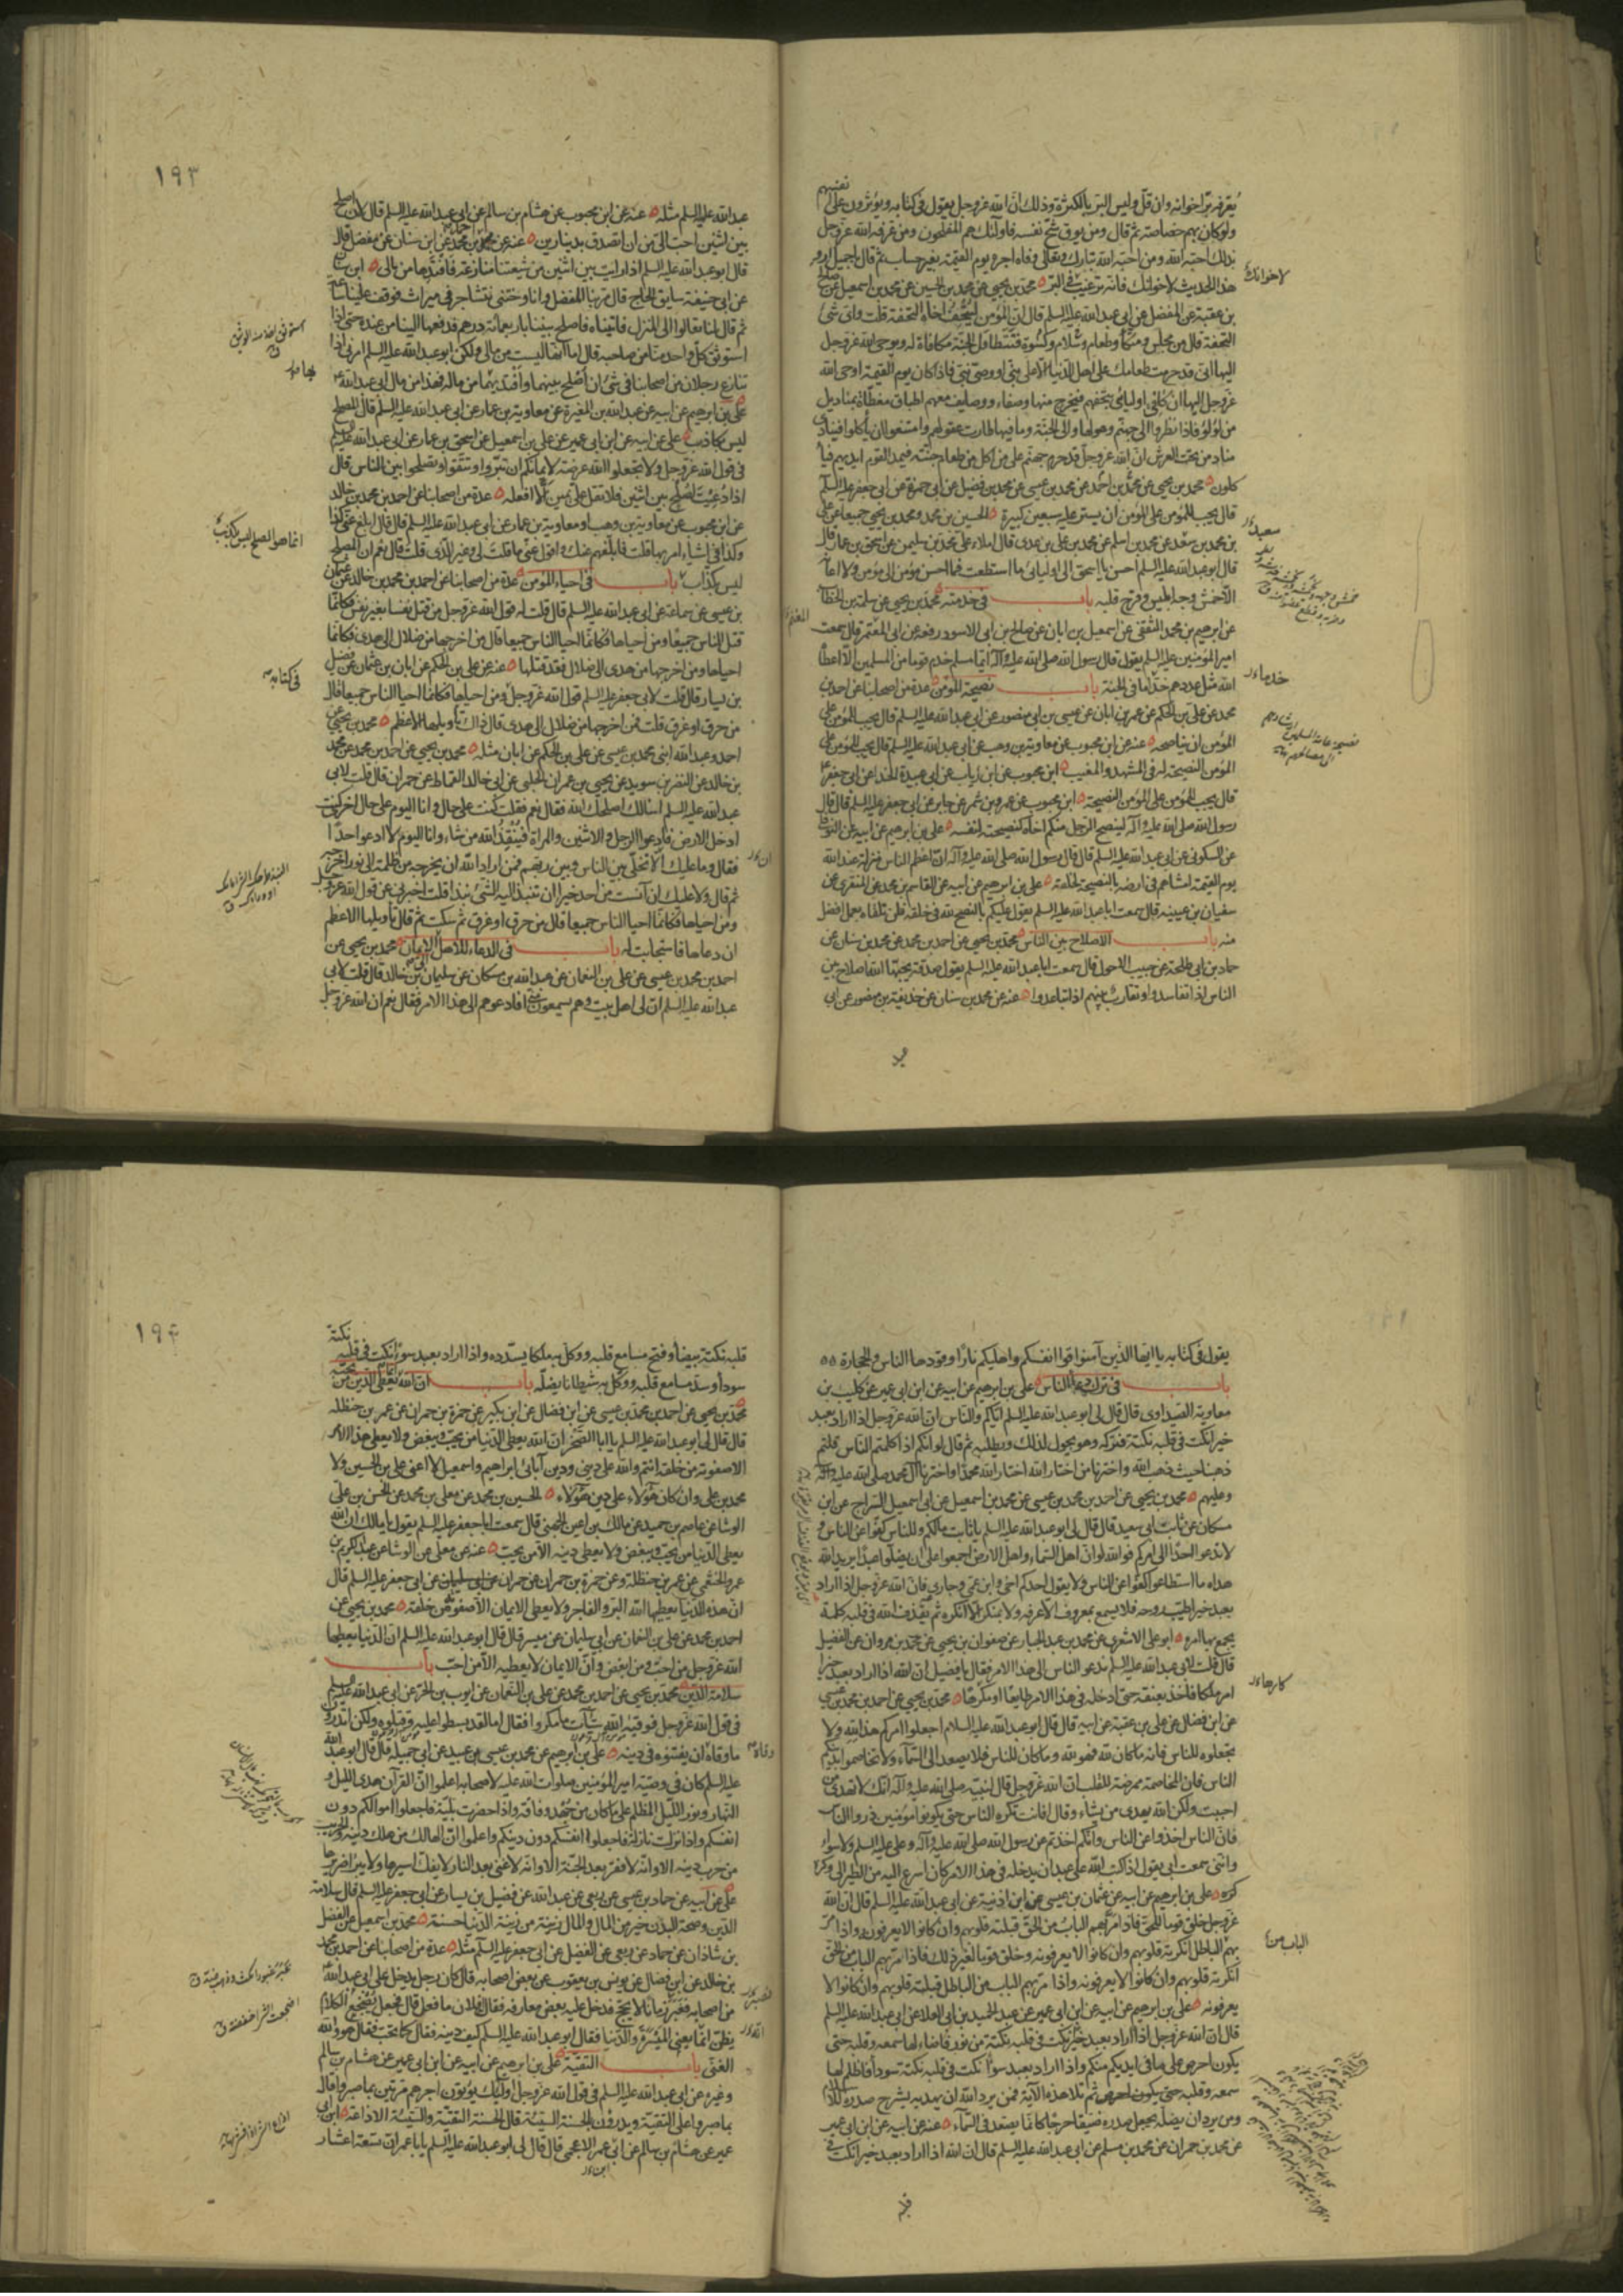 يعرفه بر اخوانه وان قل وليس البر بالكثرة وذلك ان الله عز وجل يقول في كتابه ويؤثرون على انفسهم
ولو كان بهم خصاصة ثم قال ومن يوق شح نفسه فاولئك هم المفلحون ومن عرفه الله عز وجل
بذلك احبه الله ومن احبه الله تبارك وتعالى وفاه اجره يوم القيمة بغير حساب ثم قال يا جميل ارو
هذا الحديث لاخوانك فانه ترغيب في البر محمد بن يحيى عن محمد بن الحسين عن محمد بن اسمعيل عن صالح
بن عقبة عن المفضل عن ابي عبد الله عليه السلم قال ان المؤمن ليتحف اخاه التحفة قلت واي شئ
التحفة قال من مجلس ومتكأ وطعام وسلام وكسوة فتتطاول الجنة مكافاة له ويوحي الله عز وجل
اليها اني قد حرمت طعامك على اهل الدنيا الا على نبي او وصي نبي فاذا كان يوم القيمة اوحى الله
عز وجل اليها ان كافي اوليائي بتحفهم فيخرج منها وصفاء ووصايف معهم اطباق مغطاة بمناديل
من لؤلؤ فاذا نظروا الى جهنم وهولها والى الجنة وما فيها طارت عقولهم وامتنعوا ان يأكلوا فينادي
مناد من تحت العرش ان الله عز وجل قد حرم جهنم على من اكل من طعام جنته فيمد القوم ايديهم فيأ
كلون محمد بن يحيى عن محمد بن احمد عن محمد بن عيسى عن محمد بن فضيل عن ابي حمزة عن ابي جعفر عليه السلم
قال يجب للمؤمن على المؤمن ان يستر عليه سبعين كبيرة الحسين بن محمد ومحمد بن يحيى جميعا عن علي
بن محمد بن سعد عن محمد بن اسلم عن محمد بن علي بن عدي قال املاء علي محمد بن سليمن عن اسحق بن عمار قال
قال ابو عبد الله عليه السلم احسن يا اسحق الى اوليائي ما استطعت فما احسن مؤمن الى مؤمن ولا اعانه
الا خمش وجه ابليس وقرح قلبه باب في خدمته محمد بن يحيى عن سلمة بن الخطاب
عن ابرهيم بن محمد الثقفي عن اسمعيل بن ابان عن صالح بن ابي الاسود رفعه عن ابي المعتمر قال سمعت
امير المؤمنين عليه السلم يقول قال رسول الله صلى الله عليه وآله ايما مسلم خدم قوما من المسلمين الا اعطاه
الله مثل عددهم خداما في الجنة باب نصيحة المؤمن عدة من اصحابنا عن احمد بن
محمد عن علي بن الحكم عن عمر بن ابان عن عيسى بن ابي منصور عن ابي عبد الله عليه السلم قال يجب للمؤمن على
المؤمن ان يناصحه عنه عن ابن محبوب عن معاوية بن وهب عن ابي عبد الله عليه السلم قال يجب للمؤمن على
المؤمن النصيحة له في المشهد والمغيب ابن محبوب عن ابن رياب عن ابي عبيدة الحذاء عن ابي جعفر
قال يجب للمؤمن على المؤمن النصيحة ابن محبوب عن عمرو بن شمر عن جابر عن ابي جعفر عليه السلم قال قال
رسول الله صلى الله عليه وآله لينصح الرجل منكم اخاه كنصيحته لنفسه علي بن ابرهيم عن ابيه عن النوفلي
عن السكوني عن ابي عبد الله عليه السلم قال قال رسول الله صلى الله عليه وآله ان اعظم الناس منزلة عند الله
يوم القيمة امشاهم في ارضه بالنصيحة لخلقه علي بن ابرهيم عن ابيه عن القاسم بن محمد عن المنقري عن
سفيان بن عيينه قال سمعت ابا عبد الله عليه السلم يقول عليكم بالنصح لله في خلقه فلن تلقاه بعمل افضل
منه باب الاصلاح بين الناس محمد بن يحيى عن احمد بن محمد عن محمد بن سنان عن
حماد بن ابي طلحة عن حبيب الاحول قال سمعت ابا عبد الله عليه السلم يقول صدقة يحبها الله اصلاح بين
الناس اذا تفاسدوا وتقارب بينهم اذا تباعدوا عنه عن محمد بن سنان عن حذيفة بن منصور عن ابي
لاخوانك
سعيد
خدما
١٩٣
عبد الله عليه السلم مثله عنه عن ابن محبوب عن هشام بن سالم عن ابي عبد الله عليه السلم قال لان اصلح
بين اثنين احب الي من ان اتصدق بدينارين عنه عن محمد بن محمد عن ابن سنان عن مفضل قال
قال ابو عبد الله عليه السلم اذا رايت بين اثنين من شيعتنا منازعة فافتدها من مالي ابن سنان
عن ابي حنيفة سايق الحاج قال مر بنا المفضل وانا وختني نتشاجر في ميراث فوقف علينا ساعة
ثم قال لنا تعالوا الى المنزل فاتيناه فاصلح بيننا باربعمائة درهم فدفعها الينا من عنده حتى اذا
استوثق كل واحد منا من صاحبه قال اما انها ليست من مالي ولكن ابو عبد الله عليه السلم امرني اذا
تنازع رجلان من اصحابنا في شئ ان اصلح بينهما وافتديهما من ماله فهذا من مال ابي عبد الله
علي بن ابرهيم عن ابيه عن عبد الله بن المغيرة عن معاوية بن عمار عن ابي عبد الله عليه السلم قال المصلح
ليس بكاذب علي عن ابيه عن ابن ابي عمير عن علي بن اسمعيل عن اسحق بن عمار عن ابي عبد الله عليه السلم
في قول الله عز وجل ولا تجعلوا الله عرضة لايمانكم ان تبروا وتتقوا وتصلحوا بين الناس قال
اذا دعيت لصلح بين اثنين فلا تقل علي يمين الا افعله عدة من اصحابنا عن احمد بن محمد بن خالد
عن ابن محبوب عن معاوية بن وهب او معاوية بن عمار عن ابي عبد الله عليه السلم قال قال ابلغ عني كذا
وكذا في اشياء امر بها قلت فابلغهم عنك واقول عني ما قلت لي وغير الذي قلت قال نعم ان المصلح
ليس بكذاب باب في احياء المؤمن عدة من اصحابنا عن احمد بن محمد بن خالد عن عثمان
بن عيسى عن سماعة عن ابي عبد الله عليه السلم قال قلت له قول الله عز وجل من قتل نفسا بغير نفس فكانما
قتل الناس جميعا ومن احياها فكانما احيا الناس جميعا قال من اخرجها من ضلال الى هدى فكانما
احياها ومن اخرجها من هدى الى ضلال فقد قتلها عنه عن علي بن الحكم عن ابان بن عثمان عن فضيل
بن يسار قال قلت لابي جعفر عليه السلم قول الله عز وجل ومن احياها فكانما احيا الناس جميعا قال
من حرق او غرق قلت فمن اخرجها من ضلال الى هدى قال ذاك تأويلها الاعظم محمد بن يحيى عن
احمد وعبد الله ابني محمد بن عيسى عن علي بن الحكم عن ابان مثله محمد بن يحيى عن احمد بن محمد عن محمد
بن خالد عن النضر بن سويد عن يحيى بن عمران الحلبي عن ابي خالد القماط عن حمران قال قلت لابي
عبد الله عليه السلم اسالك اصلحك الله فقال نعم فقلت كنت على حال وانا اليوم على حال اخرى كنت
ادخل الارض فادعوا الرجل والاثنين والمراة فينقذ الله من شاء وانا اليوم لا ادعو احدا
فقال وما عليك الا تخلي بين الناس وبين ربهم فمن اراد الله ان يخرجه من ظلمة الى نور اخرجه
ثم قال ولا عليك ان آنست من احد خيرا ان تنبذ اليه الشئ نبذا قلت اخبرني عن قول الله عز وجل
ومن احياها فكانما احيا الناس جميعا قال من حرق او غرق ثم سكت ثم قال تأويلها الاعظم
ان دعاها فاستجابت له باب في الدعاء للاهل الى الايمان محمد بن يحيى عن
احمد بن محمد بن عيسى عن علي بن النعمان عن عبد الله بن مسكان عن سليمان بن خالد قال قلت لابي
عبد الله عليه السلم ان لي اهل بيت وهم يسمعون مني افادعوهم الى هذا الامر فقال نعم ان الله عز وجل
انما هو المصلح ليس بكذاب
في كتابه
يقول في كتابه يا ايها الذين آمنوا قوا انفسكم واهليكم نارا وقودها الناس والحجارة
باب في ترك دعاء الناس علي بن ابرهيم عن ابيه عن ابن ابي عمير عن كليب بن
معاوية الصيداوي قال قال لي ابو عبد الله عليه السلم اياكم والناس ان الله عز وجل اذا اراد بعبد
خيرا نكت في قلبه نكتة فتركه وهو يجول لذلك ويطلبه ثم قال لو انكم اذا كلمتم الناس قلتم
ذهبنا حيث ذهب الله واخترنا من اختار الله اختار الله محمدا واخترنا آل محمد صلى الله عليه وآله
وعليهم محمد بن يحيى عن احمد بن محمد بن عيسى عن محمد بن اسمعيل عن ابي اسمعيل السراج عن ابن
مسكان عن ثابت ابي سعيد قال قال لي ابو عبد الله عليه السلم يا ثابت ما لكم وللناس كفوا عن الناس و
لا تدعوا احدا الى امركم فوالله لو ان اهل السماء واهل الارض اجمعوا على ان يضلوا عبدا يريد الله
هداه ما استطاعوا كفوا عن الناس ولا يقول احدكم اخي وابن عمي وجاري فان الله عز وجل اذا اراد
بعبد خيرا طيب روحه فلا يسمع بمعروف الا عرفه ولا بمنكر الا انكره ثم يقذف الله في قلبه كلمة
يجمع بها امره ابو علي الاشعري عن محمد بن عبد الجبار عن صفوان بن يحيى عن محمد بن مروان عن الفضيل
قال قلت لابي عبد الله عليه السلم ندعو الناس الى هذا الامر فقال يا فضيل ان الله اذا اراد بعبد خيرا
امر ملكا فاخذ بعنقه حتى ادخله في هذا الامر طايعا او مكرها محمد بن يحيى عن احمد بن محمد بن عيسى
عن ابن فضال عن علي بن عقبة عن ابيه قال قال ابو عبد الله عليه السلام اجعلوا امركم هذا لله ولا
تجعلوه للناس فانه ما كان لله فهو لله وما كان للناس فلا يصعد الى السماء ولا تخاصموا بدينكم
الناس فان المخاصمة ممرضة للقلب ان الله عز وجل قال لنبيه صلى الله عليه وآله انك لا تهدي من
احببت ولكن الله يهدي من يشاء وقال افانت تكره الناس حتى يكونوا مؤمنين ذروا الناس
فان الناس اخذوا عن الناس وانكم اخذتم عن رسول الله صلى الله عليه وآله وعلي عليه السلم ولا سواء
وانني سمعت ابي يقول اذا كتب الله على عبد ان يدخله في هذا الامر كان اسرع اليه من الطير الى وكره
علي بن ابرهيم عن ابيه عن عثمان بن عيسى عن ابن اذينة عن ابي عبد الله عليه السلم قال ان الله
عز وجل خلق قوما للحق فاذا مر بهم الباب من الحق قبلته قلوبهم وان كانوا لا يعرفونه واذا مر
بهم الباطل انكرته قلوبهم وان كانوا لا يعرفونه وخلق قوما لغير ذلك فاذا مر بهم الباب من الحق
انكرته قلوبهم وان كانوا لا يعرفونه واذا مر بهم الباب من الباطل قبلته قلوبهم وان كانوا لا
يعرفونه علي بن ابرهيم عن ابيه عن ابن ابي عمير عن عبد الحميد بن ابي العلاء عن ابي عبد الله عليه السلم
قال ان الله عز وجل اذا اراد بعبد خيرا نكت في قلبه نكتة من نور فاضاء لها سمعه وقلبه حتى
يكون احرص على ما في ايديكم منكم واذا اراد بعبد سوءا نكت في قلبه نكتة سوداء فاظلم لها
سمعه وقلبه ثم تلا هذه الآية فمن يرد الله ان يهديه يشرح صدره للاسلام
ومن يرد ان يضله يجعل صدره ضيقا حرجا كانما يصعد في السماء عنه عن ابيه عن ابن ابي عمير
عن محمد بن حمران عن محمد بن مسلم عن ابي عبد الله عليه السلم قال ان الله اذا اراد بعبد خيرا نكت في
كارها
الباب من
١٩٤
قلبه نكتة بيضاء وفتح مسامع قلبه ووكل به ملكا يسدده واذا اراد بعبد سوءا نكت في قلبه نكتة
سوداء وسد مسامع قلبه ووكل به شيطانا يضله باب ان الله انما يعطي الدين من يحبه
محمد بن يحيى عن احمد بن محمد بن عيسى عن ابن فضال عن ابن بكير عن حمزة بن حمران عن عمر بن حنظله
قال قال لي ابو عبد الله عليه السلم يا ابا الصخر ان الله يعطي الدنيا من يحب ويبغض ولا يعطي هذا الامر
الا صفوته من خلقه انتم والله على ديني ودين آبائي ابراهيم واسمعيل لا اعني علي بن الحسين ولا
محمد بن علي وان كان هؤلاء على دين هؤلاء الحسين بن محمد عن معلى بن محمد عن الحسن بن علي
الوشا عن عاصم بن حميد عن مالك بن اعين الجهني قال سمعت ابا جعفر عليه السلم يقول يا مالك ان الله
يعطي الدنيا من يحب ويبغض ولا يعطي دينه الا من يحب عنه عن معلى عن الوشا عن عبد الكريم بن
عمرو الخثعمي عن عمر بن حنظلة وعن حمزة بن حمران عن حمران عن ابي جعفر عليه السلم قال
ان هذه الدنيا يعطيها الله البر والفاجر ولا يعطي الايمان الا صفوته من خلقه محمد بن يحيى عن
احمد بن محمد عن علي بن النعمان عن ابي سليمان عن ميسر قال قال ابو عبد الله عليه السلم ان الدنيا يعطيها
الله عز وجل من احب ومن ابغض وان الايمان لا يعطيه الا من احب باب
سلامة الدين محمد بن يحيى عن احمد بن محمد عن علي بن النعمان عن ايوب بن الحر عن ابي عبد الله عليه السلم
في قول الله عز وجل فوقيه الله سيئات ما مكروا فقال اما لقد بسطوا عليه وقتلوه ولكن اتدرون
ما وقاه ان يفتنوه في دينه علي بن ابرهيم عن محمد بن عيسى بن عبيد عن ابي جميله قال قال ابو عبد الله
عليه السلم كان في وصية امير المؤمنين صلوات الله عليه لاصحابه اعلموا ان القرآن هدى الليل و
النهار ونور الليل المظلم على ما كان من جهد وفاقه واذا حضرت بلية فاجعلوا اموالكم دون
انفسكم واذا نزلت نازلة فاجعلوا انفسكم دون دينكم واعلموا ان الهالك من هلك دينه والحريب
من حرب دينه الا وانه لا فقر بعد الجنة الا وانه لا غنى بعد النار لا يفك اسيرها ولا يبرأ ضريرها
علي عن ابيه عن حماد بن عيسى عن ربعي بن عبد الله عن فضيل بن يسار عن ابي جعفر عليه السلم قال سلامة
الدين وصحة البدن خير من المال والمال زينة من زينة الدنيا حسنة محمد بن اسمعيل عن الفضل
بن شاذان عن حماد عن ربعي عن الفضيل عن ابي جعفر عليه السلم مثله عدة من اصحابنا عن احمد بن محمد
بن خالد عن ابن فضال عن يونس بن يعقوب عن بعض اصحابه قال كان رجل يدخل على ابي عبد الله
من اصحابه فغبر زمانا لا يحج فدخل عليه بعض معارفه فقال فلان ما فعل قال فجعل يضجع الكلام
يظن انما يعني الميسرة والدنيا فقال ابو عبد الله عليه السلم كيف دينه فقال كما تحب فقال هو والله
الغنى باب التقية علي بن ابرهيم عن ابيه عن ابن ابي عمير عن هشام بن سالم
وغيره عن ابي عبد الله عليه السلم في قول الله عز وجل اولئك يؤتون اجرهم مرتين بما صبروا قال
بما صبروا على التقية ويدرؤن بالحسنة السيئة قال الحسنة التقية والسيئة الاذاعة ابن ابي
عمير عن هشام بن سالم عن ابي عمر الاعجمي قال قال لي ابو عبد الله عليه السلم يا با عمر ان تسعة اعشار